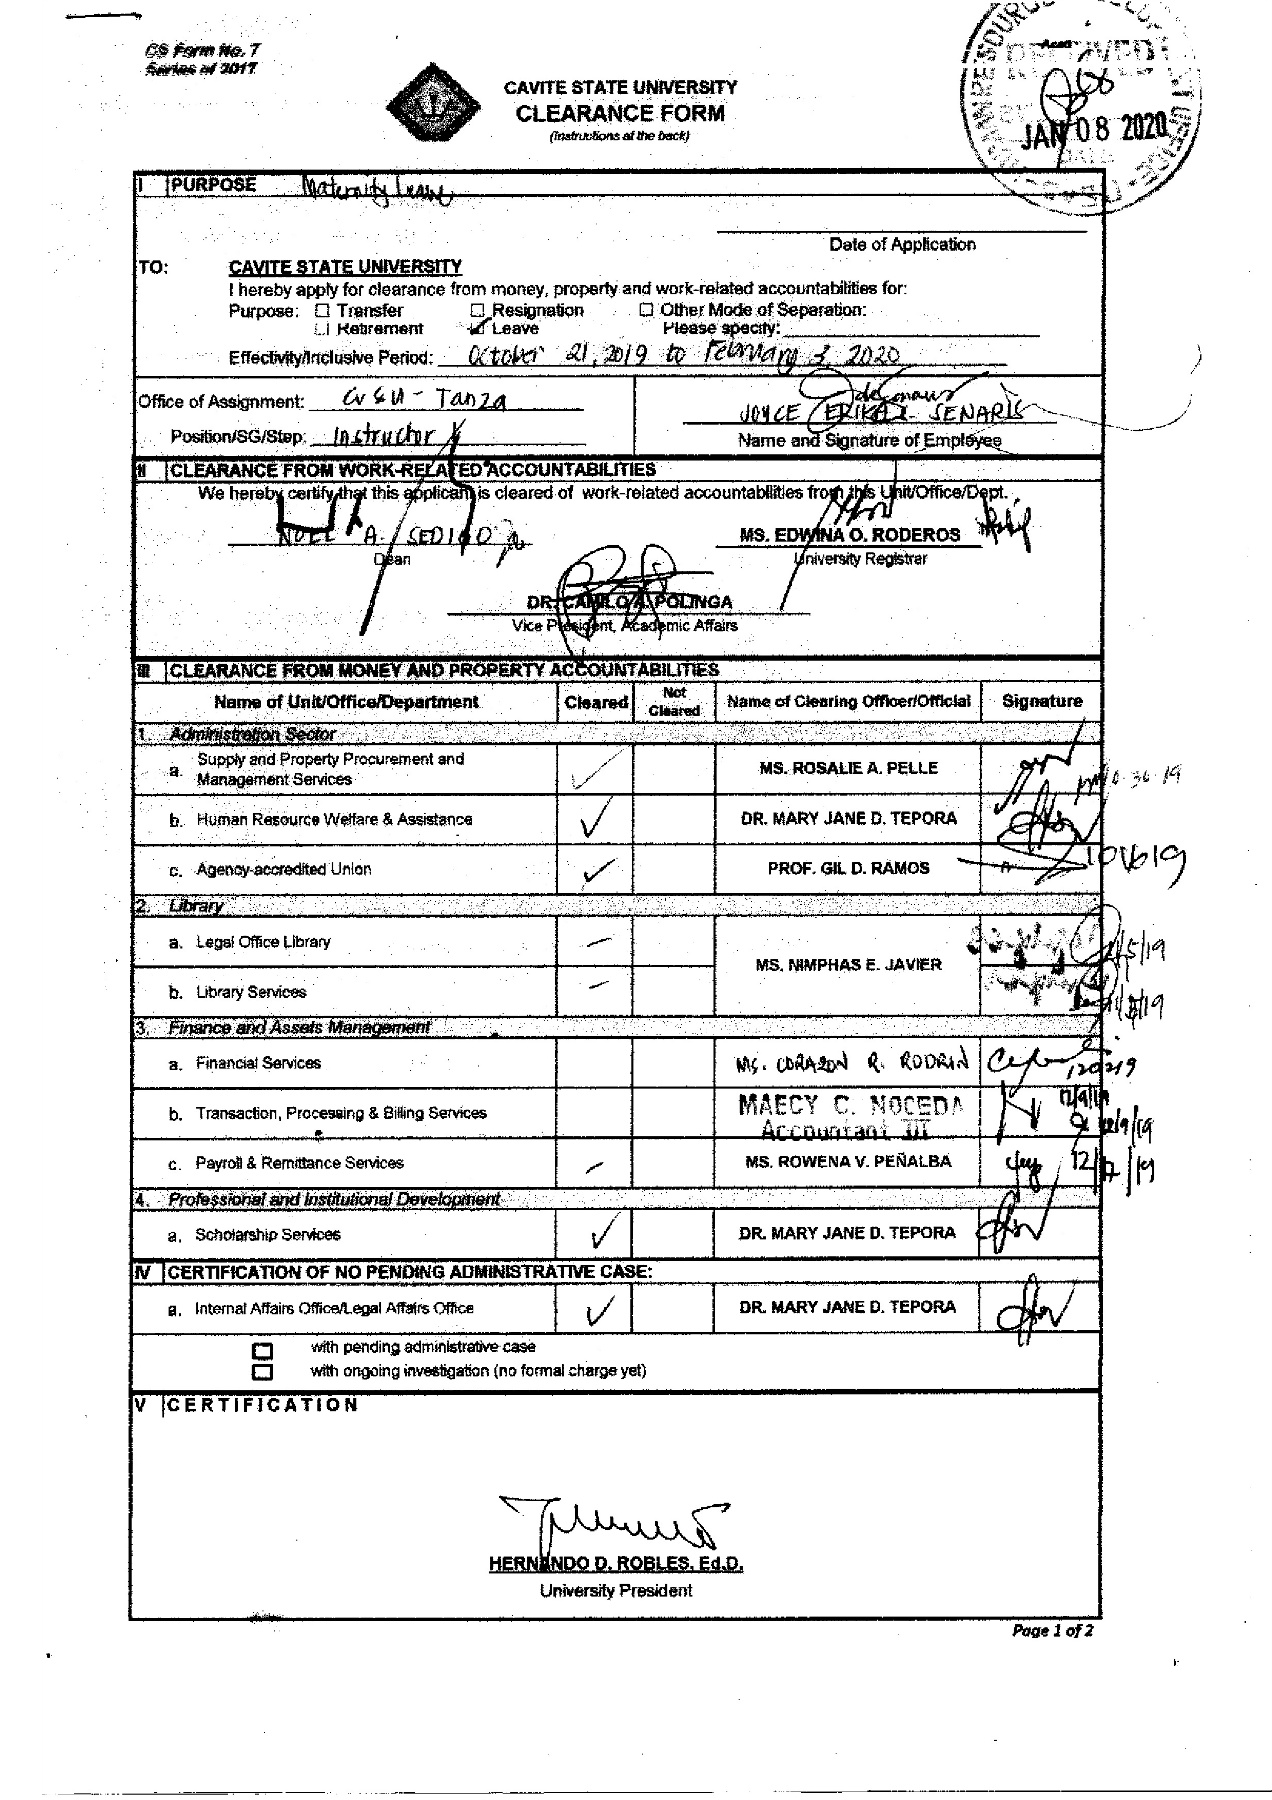 CS Form No. 7
Series of 2017
CAVITE STATE UNIVERSITY
CLEARANCE FORM
(Instructions at the back)
RECEIVED
JAN 08 2020
DATE
I PURPOSE Maternity Leave
Date of Application
TO: CAVITE STATE UNIVERSITY
I hereby apply for clearance from money, property and work-related accountabilities for:
Purpose: ☐ Transfer ☐ Resignation ☐ Other Mode of Separation:
☐ Retirement ☑ Leave Please specify:
Effectivity/Inclusive Period: October 21, 2019 to February 3, 2020
Office of Assignment: CvSU - Tanza
JOYCE ERIKA SENARIS
Position/SG/Step: Instructor I
Name and Signature of Employee
II CLEARANCE FROM WORK-RELATED ACCOUNTABILITIES
We hereby certify that this applicant is cleared of work-related accountabilities from this Unit/Office/Dept.
NOEL A. SEDIGO
MS. EDWINA O. RODEROS
Dean
University Registrar
DR. CAMILO A. POLINGA
Vice President, Academic Affairs
III CLEARANCE FROM MONEY AND PROPERTY ACCOUNTABILITIES
Name of Unit/Office/Department Cleared Not Cleared Name of Clearing Officer/Official Signature
1. Administration Sector
a. Supply and Property Procurement and Management Services MS. ROSALIE A. PELLE
b. Human Resource Welfare & Assistance DR. MARY JANE D. TEPORA
c. Agency-accredited Union PROF. GIL D. RAMOS
2. Library
a. Legal Office Library
MS. NIMPHAS E. JAVIER
b. Library Services
3. Finance and Assets Management
a. Financial Services MS. CORAZON R. RODRIN
b. Transaction, Processing & Billing Services MAECY C. NOCEDA
Accountant III
12/9/19
c. Payroll & Remittance Services MS. ROWENA V. PEÑALBA
4. Professional and Institutional Development
a. Scholarship Services DR. MARY JANE D. TEPORA
IV CERTIFICATION OF NO PENDING ADMINISTRATIVE CASE:
a. Internal Affairs Office/Legal Affairs Office DR. MARY JANE D. TEPORA
☐ with pending administrative case
☐ with ongoing investigation (no formal charge yet)
V CERTIFICATION
HERNANDO D. ROBLES, Ed.D.
University President
Page 1 of 2